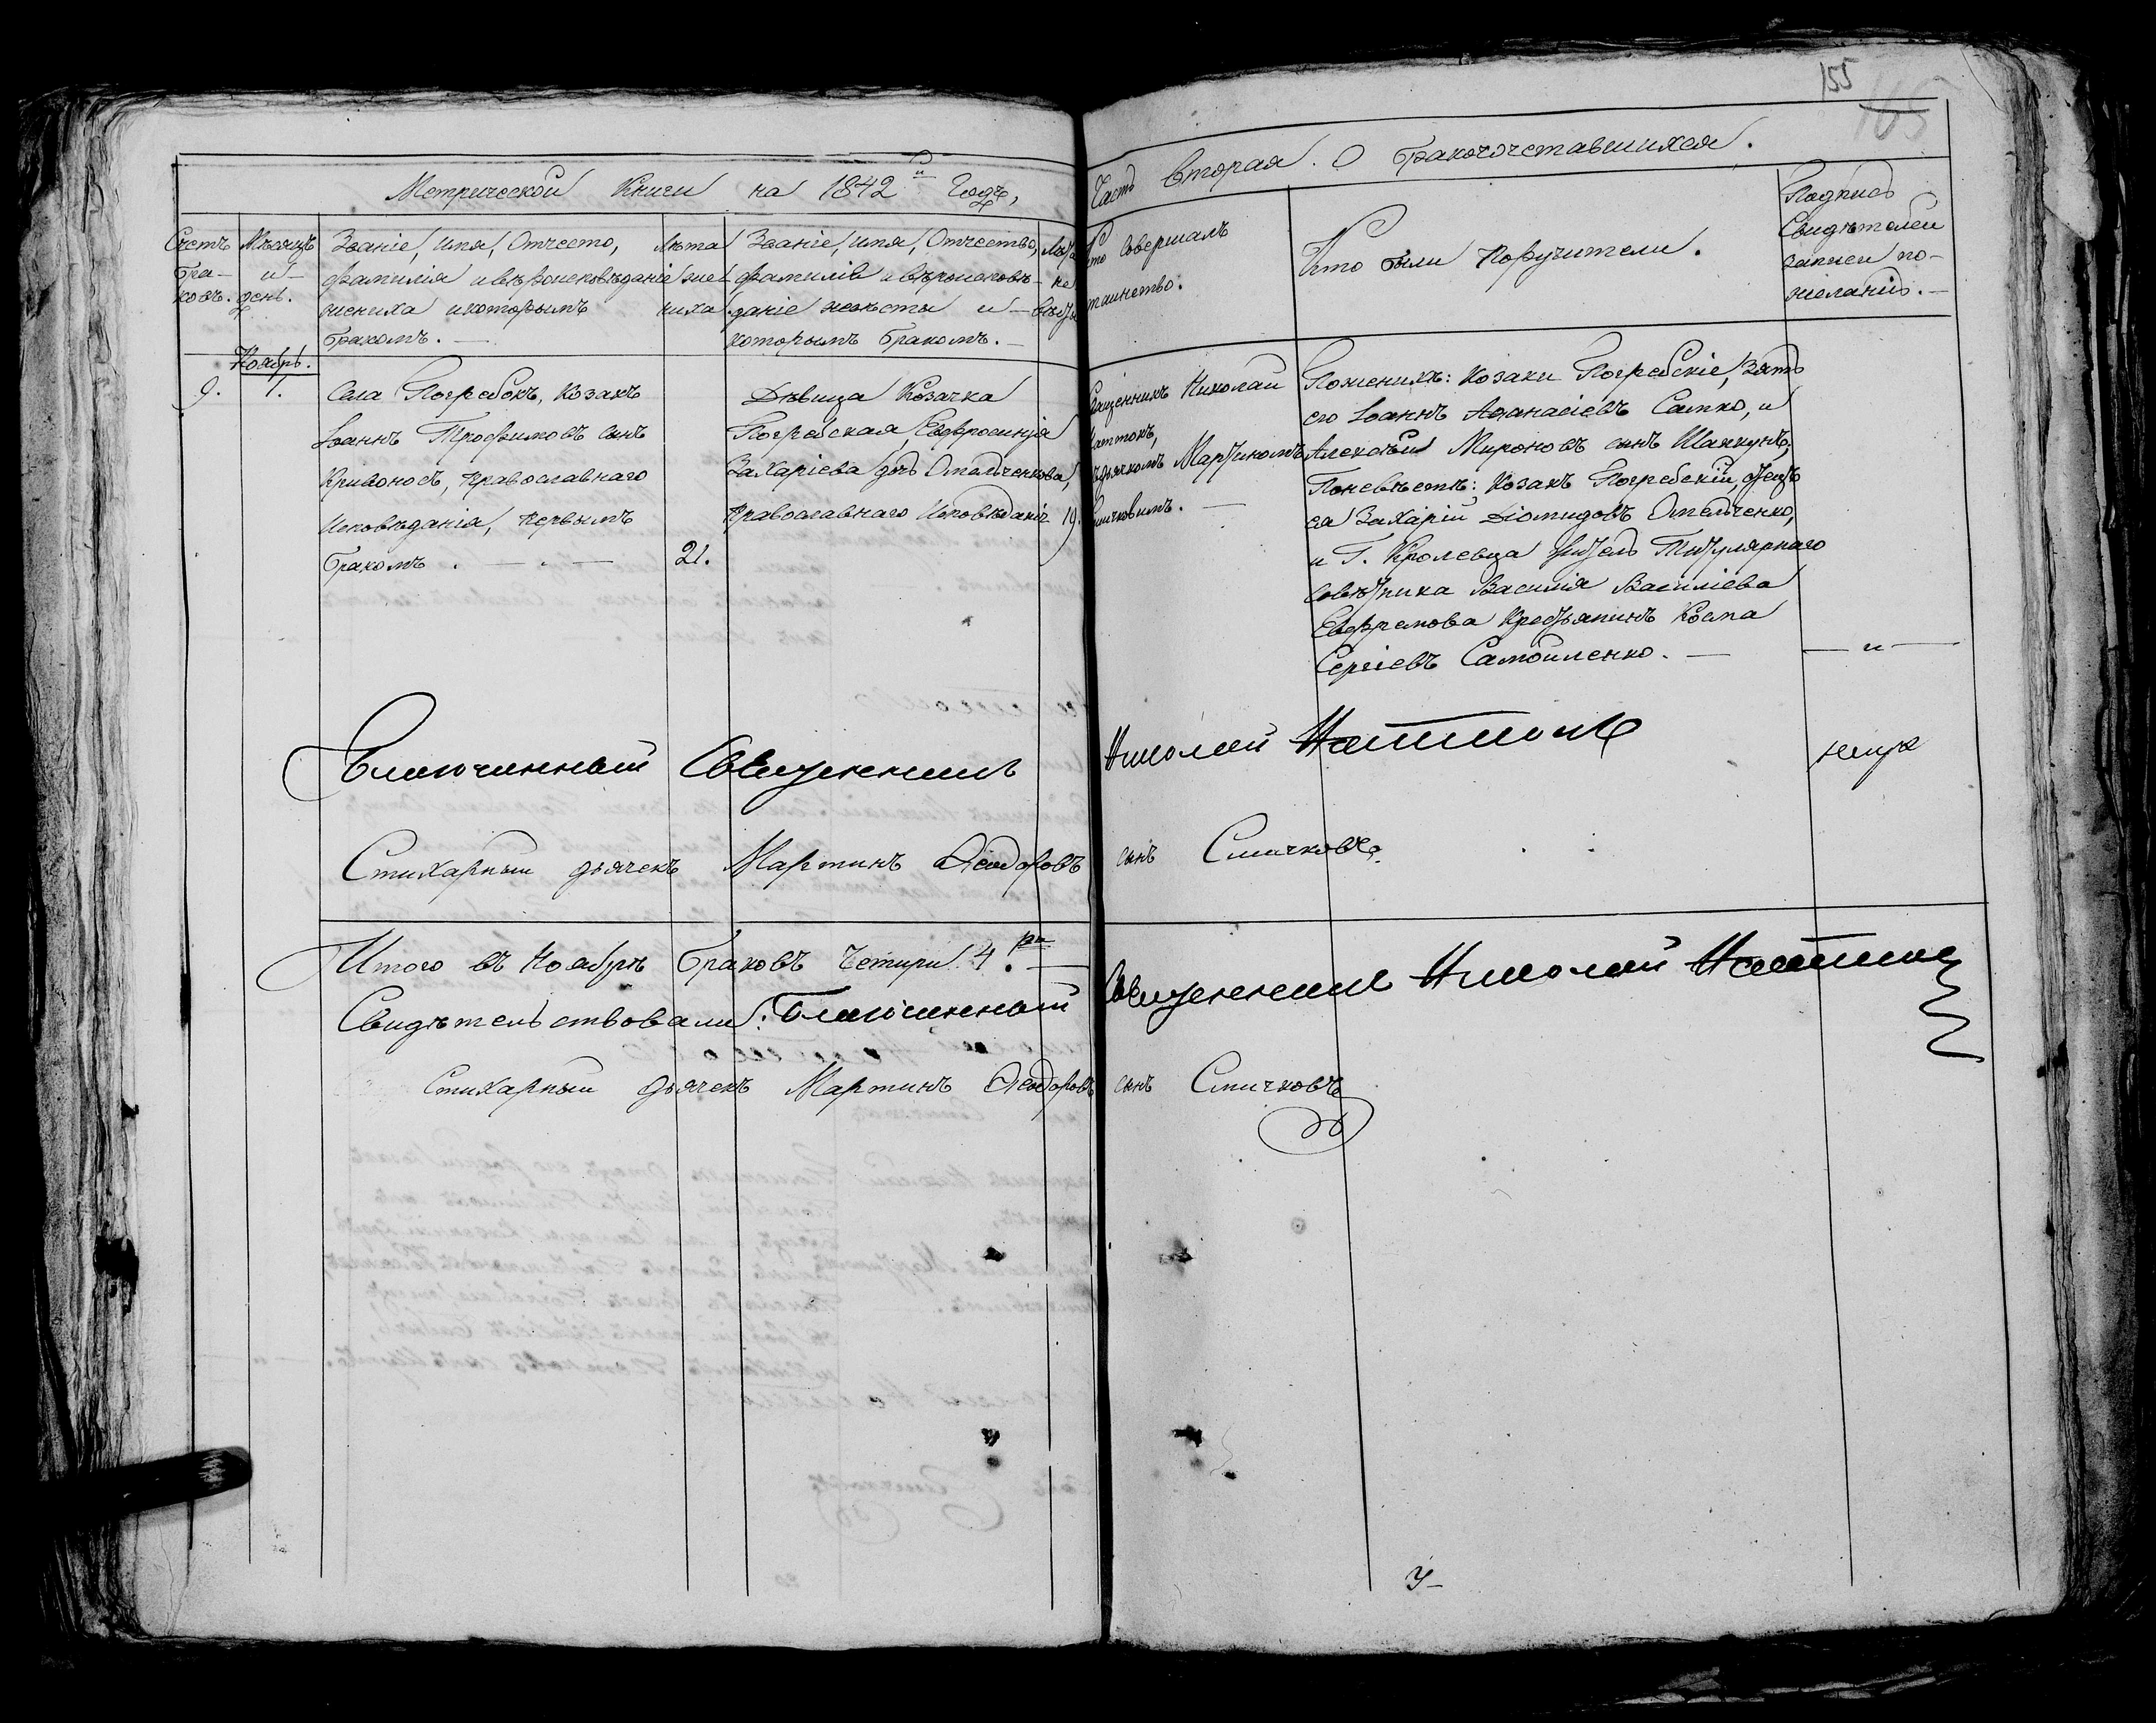 155
165
Метрической Книги на 1842й Годъ,
Часть Вторая. О Бракосочетавшихся.
Счетъ бра-ковъ.
Мѣсяцъ и день.
Званіе, Имя, Отчество,
фамилія и вѣроисповѣданіе
жениха и которымъ
бракомъ. —
Лѣта
же-
ниха
Званіе, Имя, Отчество,
фамилія и вѣроисповѣ-
даніе невѣсты и —
которымъ бракомъ. —
Лѣта
не
вѣсты
Кто совершалъ
таинство.
Кто были Поручители.
Подпись
Свидѣтелей
записи по-
желанію. —
Ноябрь.
9. 1.
Села Погребокъ, Козакъ
Іоаннъ Трофимовъ сынъ
Кривоносъ, Православнаго
Исповѣданія, первымъ
бракомъ. — . —
21.
Дѣвица Козачка
Погребская, Евфросинія
Захаріева дчь Омельченкова,
Православнаго Исповѣданія
19.
Священникъ Николай
Маттокъ,
съ дьячкомъ Мартиномъ
Смичковимъ. —
По женихѣ: Козаки Погребскіе, Зять
его Іоаннъ Аѳанасіевъ Сапко, и
Алексѣй Мироновъ сынъ Шаккунъ,
По невѣстѣ: Козакъ Погребскій, Отецъ
ея Захарій Діомидовъ Омельченко,
и Г. Кролевца житель Титулярнаго
Совѣтника Василія Василіева
Евфремова Крестьянинъ Косма
Сергіевъ Самойленко. —
— " —
Благочинный Священникъ Николай
Стихарный дьячекъ Мартинъ Ѳеодоровъ сынъ Смичковъ.
Итого въ Ноябрѣ браковъ четыри. 4. —
Свидѣтельствовали: Благочинный Священникъ Николай
Стихарный дьячекъ Мартинъ Ѳеодоровъ сынъ Смичковъ